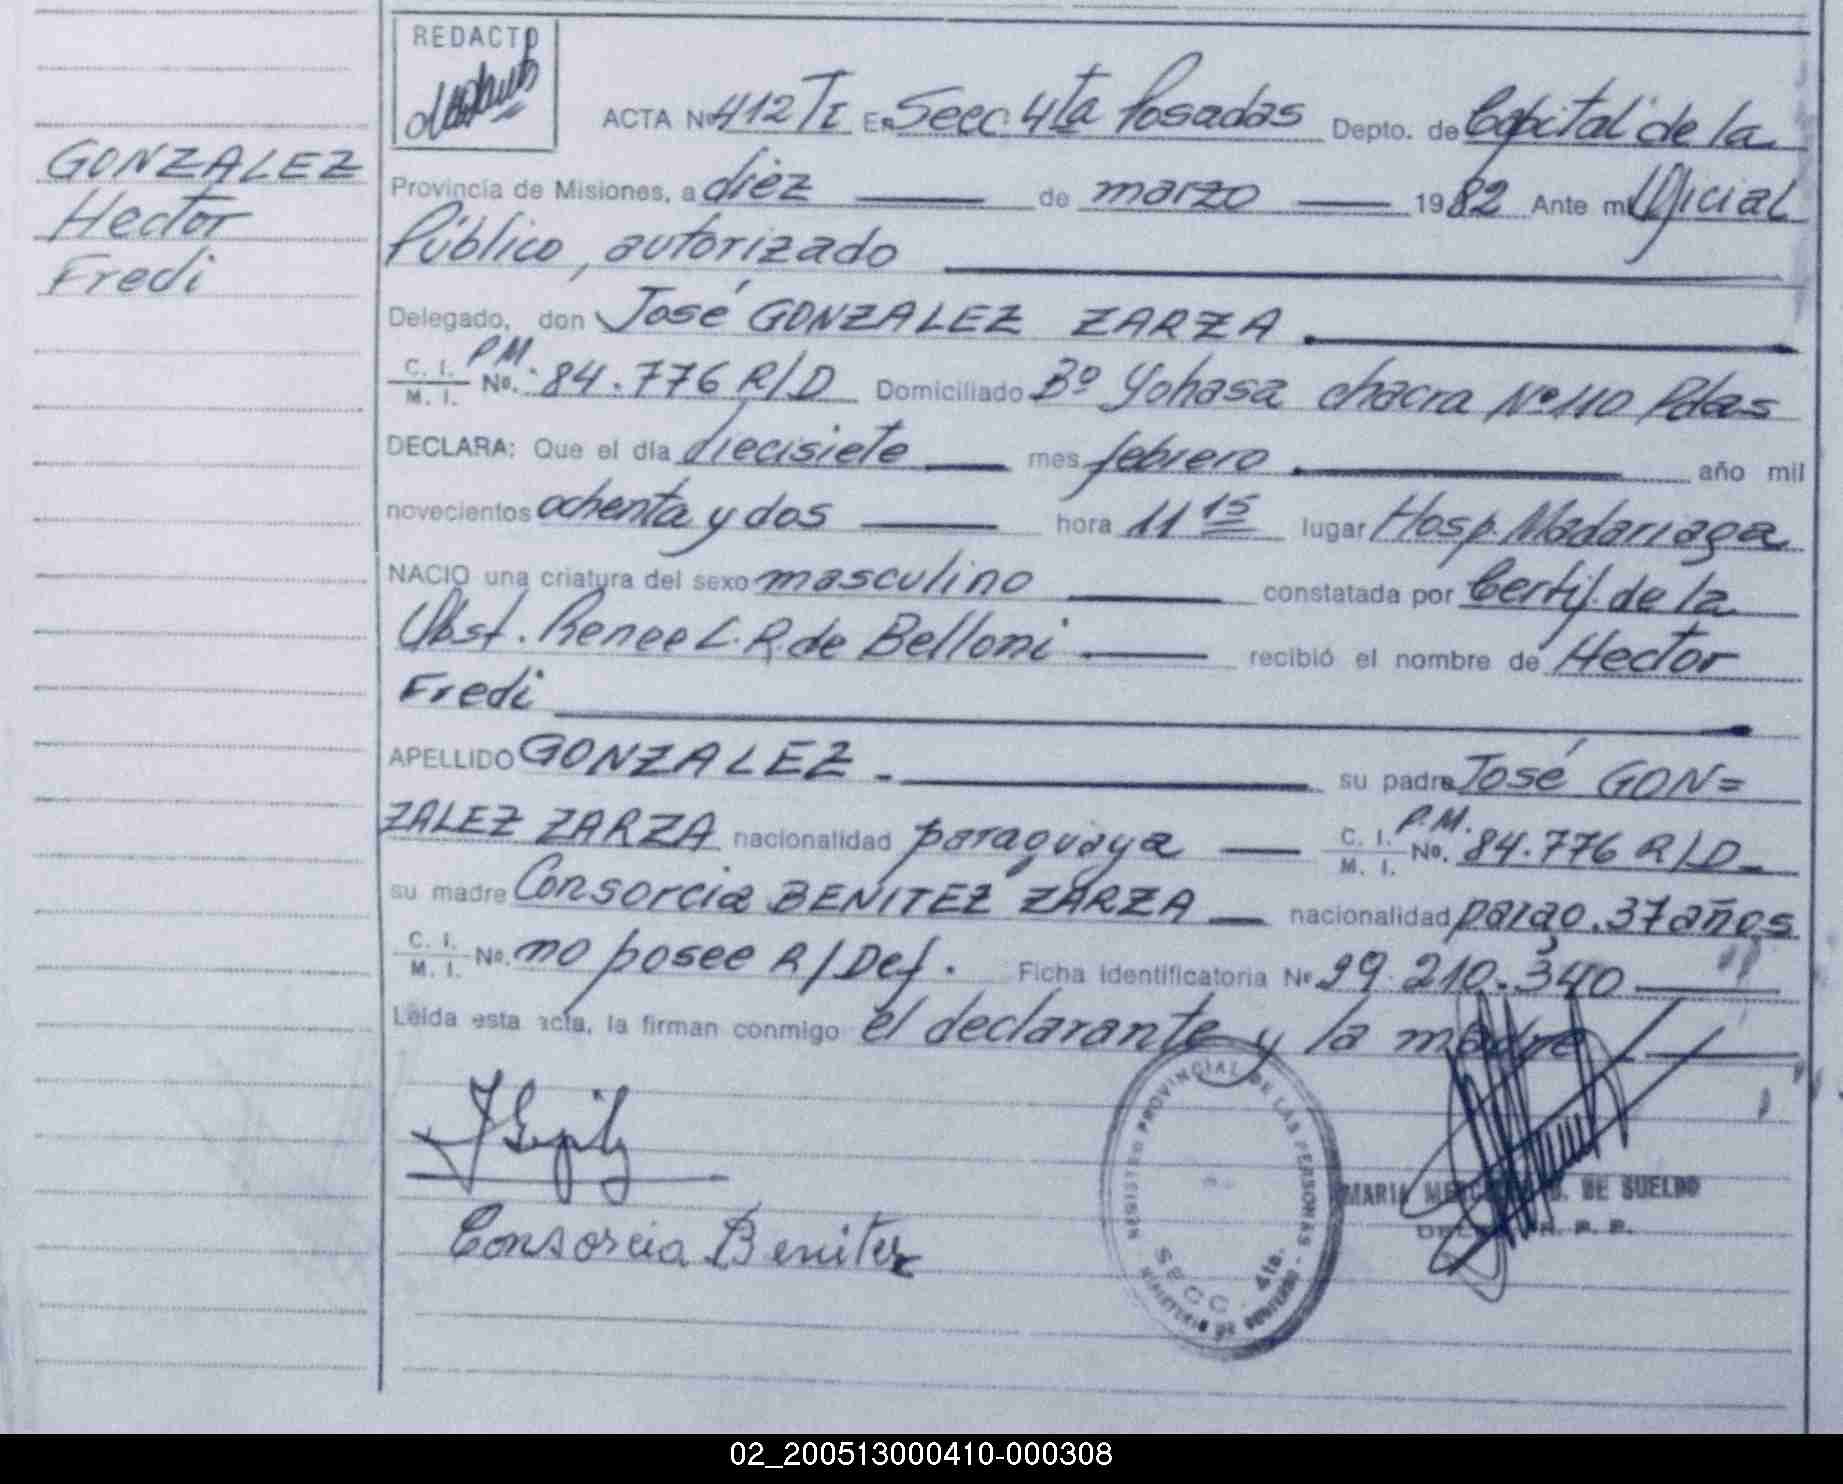 REDACTO
GONZALEZ
Hector
Fredi
ACTA Nº 412 TI En Secc 4ta Posadas Depto. de Capital de la
Provincia de Misiones, a diez de marzo 1982 Ante mi Oficial
Público, autorizado
Delegado, don José GONZALEZ ZARZA
C. I. M. I. P.M. No. 84.776 R/D Domiciliado Bº Yohasa chacra Nº 110 Pdas
DECLARA: Que el día diecisiete mes febrero año mil
novecientos ochenta y dos hora 11 15 lugar Hosp. Madariaga
NACIO una criatura del sexo masculino constatada por Certif. de la
Obst. Renee L. R. de Belloni recibió el nombre de Hector
Fredi
APELLIDO GONZALEZ su padre José GON=
ZALEZ ZARZA nacionalidad paraguaya C. I. M. I. P.M. No. 84.776 R/D
su madre Consorcia BENITEZ ZARZA nacionalidad parag. 37 años
C. I. M. I. No. no posee R/Def. Ficha Identificatoria Nº 29.210.340
Leída esta acta, la firman conmigo el declarante y la madre
Consorcia Benitez
REGISTRO PROVINCIAL DE LAS PERSONAS - MINISTERIO DE GOBIERNO
SECC. 4ta.
MARIA DE SUELDO
R. P. P.
02_200513000410-000308